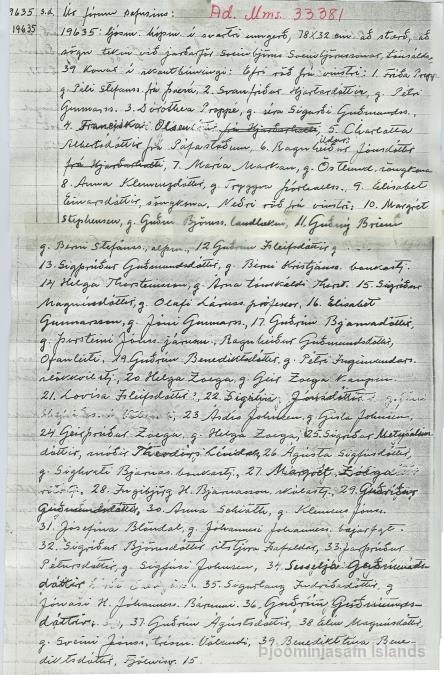 19635 s.d. Úr fórum safnsins: Ad. Mms. 33381
19635 19635: Ljósm. kopía í svartri umgerð, 78x32 cm að stærð, að
sögn tekin við jarðarför Sveinbjörns Sveinbjörnssonar, tónskálds.
39 konur í skautbúningi: Efri röð frá vinstri: 1. Fríða Propp
g. Páli Stefánss. frá Þverá, 2. Svanfríður Hjartardóttir, g. Pétri
Gunnarss. 3. Dórothea Proppé, g. séra Sigurði Guðmundss.,
4. Franciska Olsen frá 5. Charlotta
Albertsdóttir frá Páfastöðum, 6. Ragnheiður Jónsdóttir
7. María Markan, g. Östlund, söngkona
8. Anna Klemenzdóttir, g. Tryggva Þórhallss., 9. Elísabet
Einarsdóttir, söngkona. Neðri röð frá vinstri: 10. Margrét
Stephensen, g. Guðm. Björnss. landlækni, 11. Guðný Briem
g. Birni Stefánss. alþm., 12. Guðrún Eileifsdóttir g
13. Sigþrúður Guðmundsdóttir, g. Birni Kristjánss. bankastj.
14. Helga Thorsteinson, g. Árna tónskáldi Thorst. 15. Sigríður
Magnúsdóttir, g. Ólafi Láruss. prófessor, 16. Elísabet
Gunnarsson, g. Jóni Gunnarss., 17. Guðrún Bjarnadóttir,
g. Þorsteini Jónss. járnsm., Ragnheiður Guðmundsdóttir,
Ofanleiti. 19. Guðrún Benediktsdóttir, g. Pétri Ingimundars.
slökkvilstj., 20. Helga Zoega, g. Geir Zoega kaupm.
21. Lovísa Eileifsdóttir?, 22. Sigríður Jónsdóttir
23. Ásdís Johnsen, g. Gísla Johnsen,
24. Geirþrúður Zoega, g. Helga Zoega, 25. Sigríður Metúsalem
dóttir, móðir Theodórs Líndal, 26. Ágústa Sigfúsdóttir,
g. Sighvati Bjarnas. bankastj., 27. Margrét Zoëga
28. Ingibjörg H. Bjarnason, skólastj., 29. Guðríður
Guðmundsdóttir, 30. Anna Schiöth, g. Klemens Jónss.
31. Jósefína Blöndal, g. Jóhannesi Jóhanness. bæjarfót.
32. Sigríður Björnsdóttir ritstjóra Ísafoldar, 33. Jarþrúður
Pétursdóttir, g. Sigfúsi Johnsen, 34. Sesselja Guðmunds-
dóttir 35. Sigurlaug Indriðadóttir, g
Jónasi H. Jóhanness. Bárunni. 36. Guðrún Guðmunds-
dóttir, 37. Guðrún Ágústsdóttir, 38. Elín Magnúsdóttir,
g. Sveini Jónss., trésm. Völundi, 39. Benediktína Bene-
diktsdóttir, Fjölnisv. 15.
Þjóðminjasafn Íslands